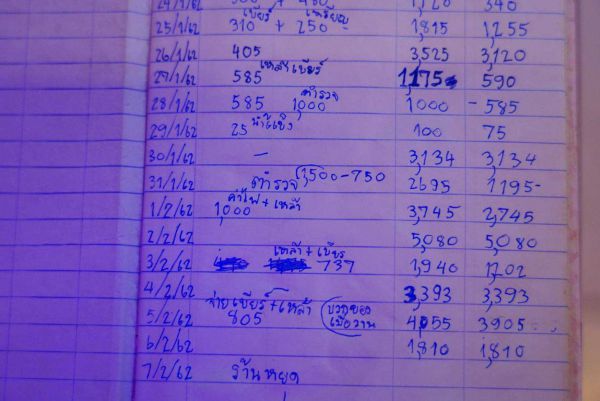 24/1/62 1,120 340
เบียร์ เหรียญ
25/1/62 310 + 250 1,815 1,255
26/1/62 405 3,525 3,120
เหล้า เบียร์
27/1/62 585 1,175 590
ตำรวจ
28/1/62 585 1,000 1000 - 585
น้ำแข็ง
29/1/62 25 100 75
30/1/62 — 3,134 3,134
31/1/62 ตำรวจ 1,500-750 2695 1195-
ค่าไฟ + เหล้า
1/2/62 1,000 3,745 2,745
2/2/62 5,080 5,080
เหล้า + เบียร์
3/2/62 737 1,940 1,202
4/2/62 3,393 3,393
จ่ายเบียร์ + เหล้า (บวกของ
5/2/62 805 เมื่อวาน 4,055 3905
6/2/62 1,810 1,810
7/2/62 ร้านหยุด